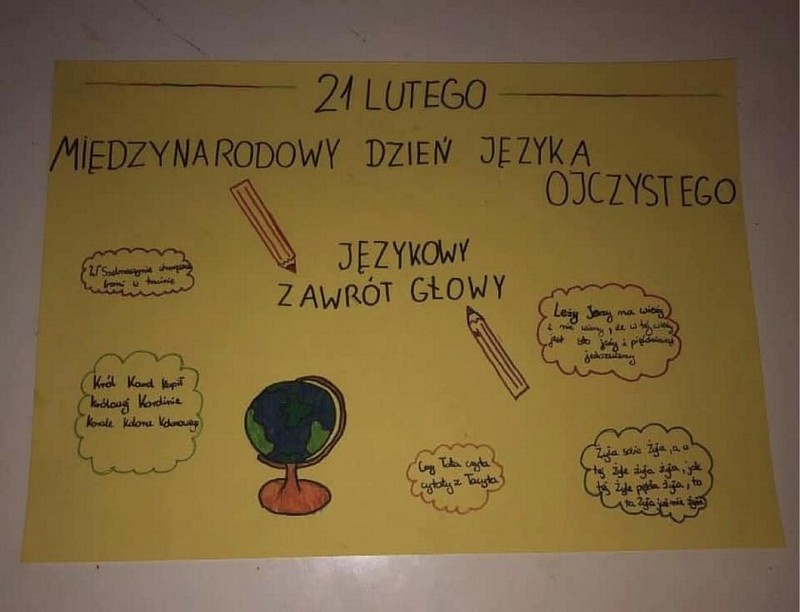 21 LUTEGO
MIĘDZYNARODOWY DZIEŃ JĘZYKA
OJCZYSTEGO
JĘZYKOWY
ZAWRÓT GŁOWY
W Szebrzeszynie
w trzcinie
Leży Jerzy na wieży
i nie wierzy, że w tej wieży
jest sto jeży i pięćdziesiąt
Król Karol kupił
królowej Karolinie
korale koloru
Czy Tata czyta
cytaty z Tacyta
Żyła sobie Żyła, a u
tej Żyły żyła żyła, jak
tej Żyle pękła żyła, to
ta Żyła już nie żyła